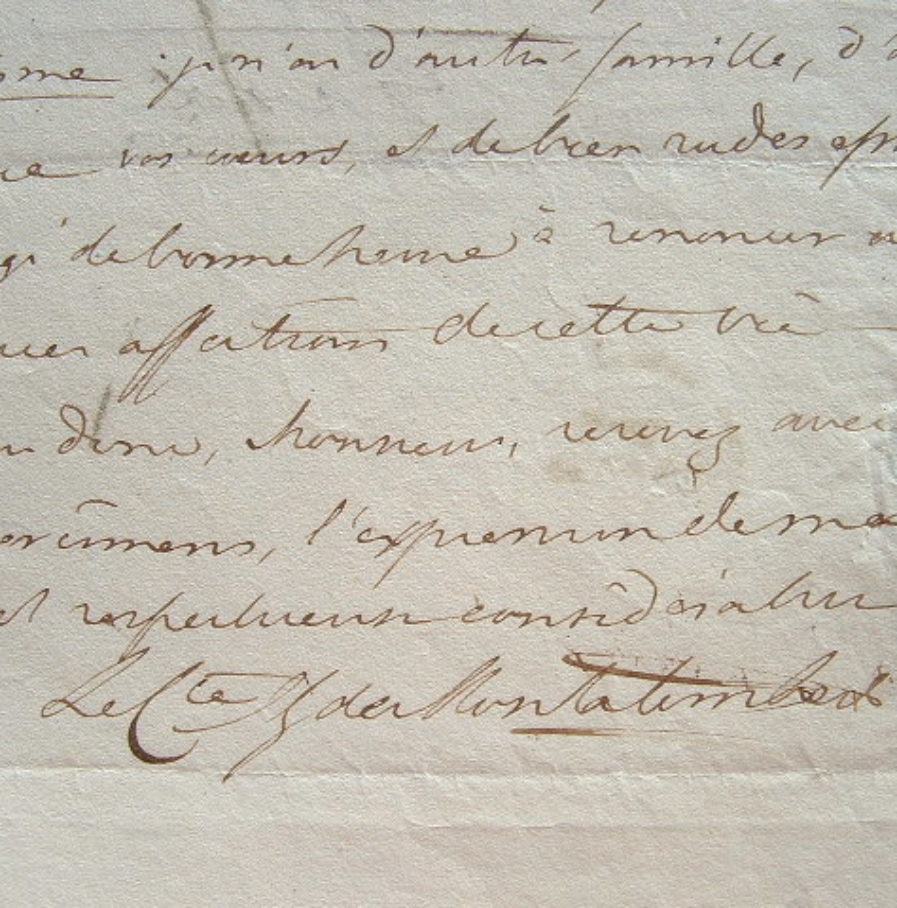 isme je n'ai d'autre famille, d'a
que vos cœurs, et de bien rudes épr
gé de bonne heure à renoncer a
ces affections de cette vie
donc, Monsieur, recevez avec
l'expression de ma
et respectueuse considération
Le Cte de Montalembert